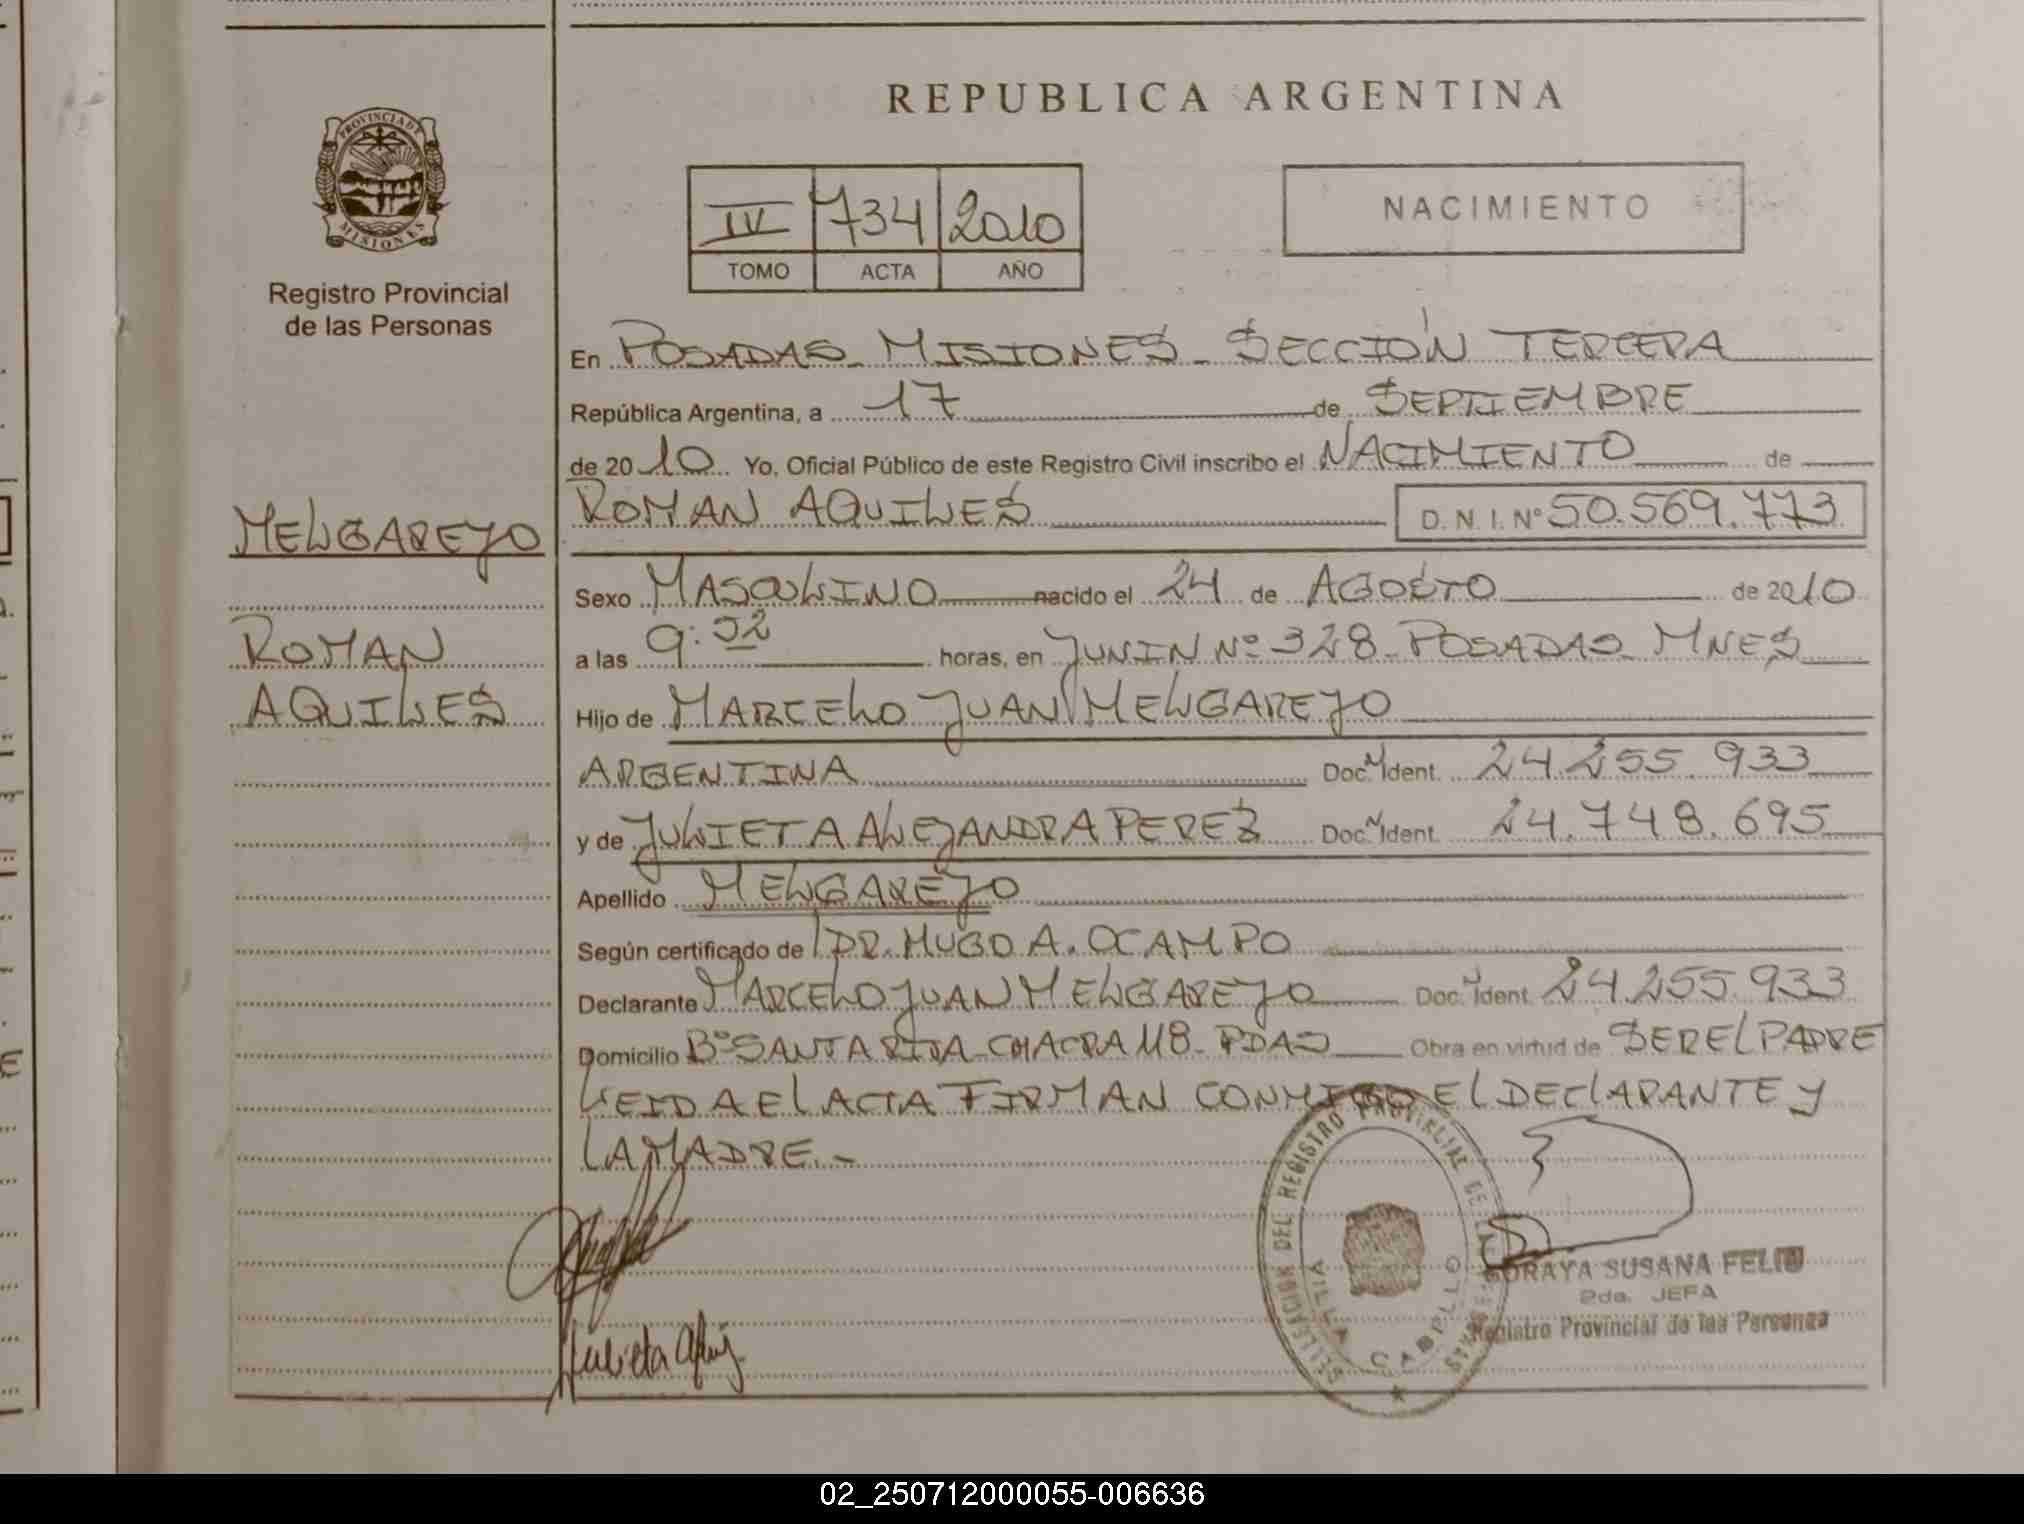 REPUBLICA ARGENTINA
PROVINCIA DE
MISIONES
Registro Provincial
de las Personas
IV 734 2010
TOMO ACTA AÑO
NACIMIENTO
En POSADAS - MISIONES - SECCIÓN TERCERA
República Argentina, a 17 de SEPTIEMBRE
de 2010 Yo, Oficial Público de este Registro Civil inscribo el NACIMIENTO de
ROMAN AQUILES D.N.I. Nº 50.569.773
MELGAREJO
ROMAN
AQUILES
Sexo MASCULINO nacido el 24 de AGOSTO de 2010
a las 9:52 horas, en JUNIN Nº 328 - POSADAS - MNES
Hijo de MARCELO JUAN MELGAREJO
ARGENTINA Doc. Ident. 24.255.933
y de JULIETA ALEJANDRA PEREZ Doc. Ident. 24.748.695
Apellido MELGAREJO
Según certificado de DR. HUGO A. OCAMPO
Declarante MARCELO JUAN MELGAREJO Doc. Ident. 24.255.933
Domicilio Bº SANTA RITA - CHACRA 118 - PDAS Obra en virtud de SER EL PADRE
LEIDA EL ACTA FIRMAN CONMIGO EL DECLARANTE Y
LA MADRE. -
DELEGACION DEL REGISTRO PROVINCIAL DE LAS PERSONAS
VILLA CABELLO
SORAYA SUSANA FELIU
2da. JEFA
Registro Provincial de las Personas
Julieta
02_250712000055-006636